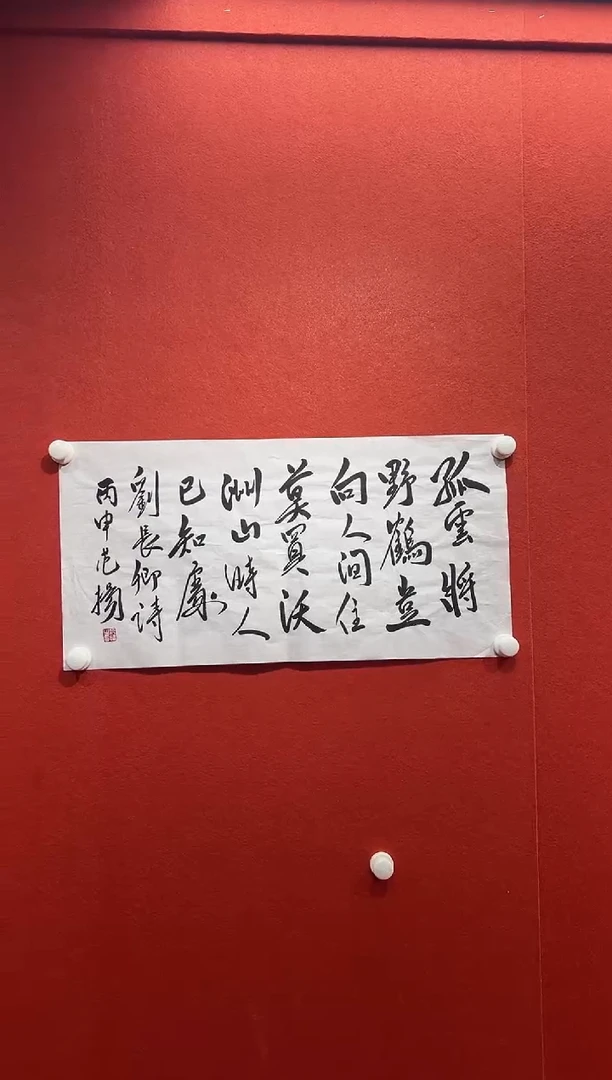 孤雲將
野鶴豈
向人間住
莫買沃
洲山時人
已知處
劉長卿詩
丙申范揚